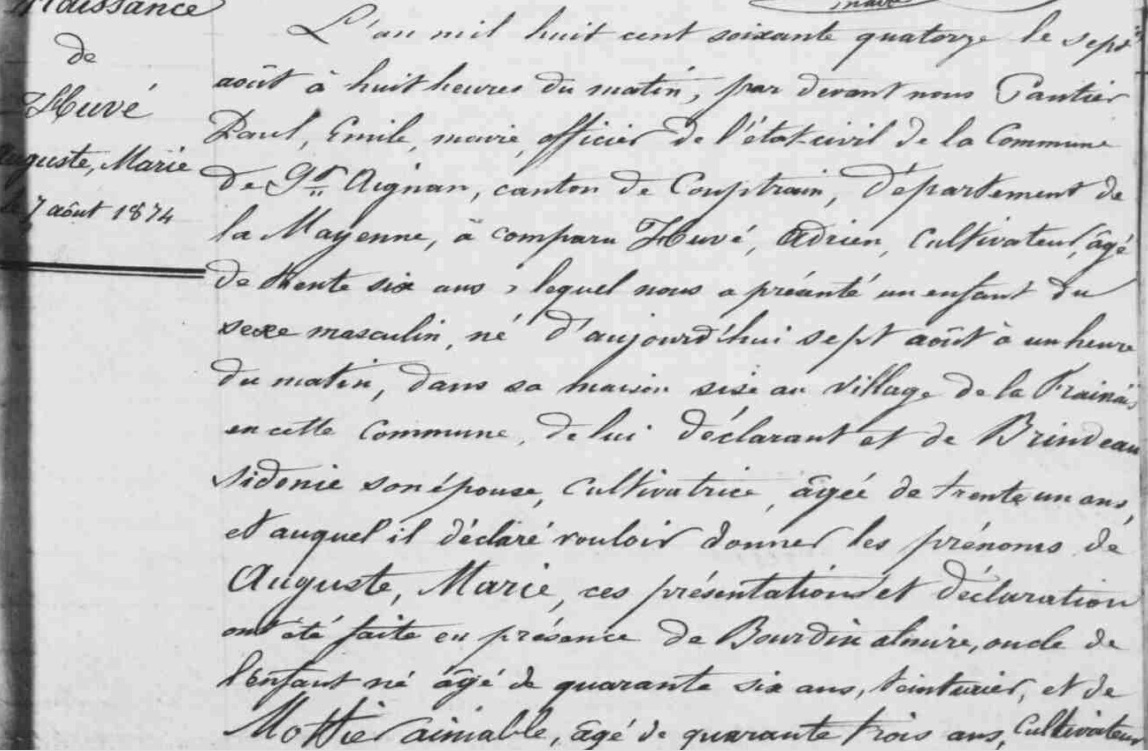 Naissance
de
Huvé
Auguste, Marie
le 7 août 1874
maire
L'an mil huit cent soixante quatorze le sept
août à huit heures du matin, par devant nous Pantier
Paul, Emile, maire, officier de l'état-civil de la Commune
de St Aignan, canton de Couptrain, département de
la Mayenne, à comparu Huvé, Adrien, Cultivateur, âgé
de trente six ans, lequel nous a présanté un enfant du
sexe masculin, né d'aujourd'hui sept août à un heure
du matin, dans sa maison sise au village de la Frainais
en cette Commune, de lui déclarant et de Brindeau
Sidonie son épouse, Cultivatrice, âgée de trente un ans,
et auquel il déclaré vouloir donner les prénoms de
Auguste, Marie, ces présentations et déclaration
ont été faite en présence de Bourdin almire, oncle de
l'enfant né âgé de quarante six ans, teinturier, et de
Mottier aimable, âgé de quarante trois ans, Cultivateur